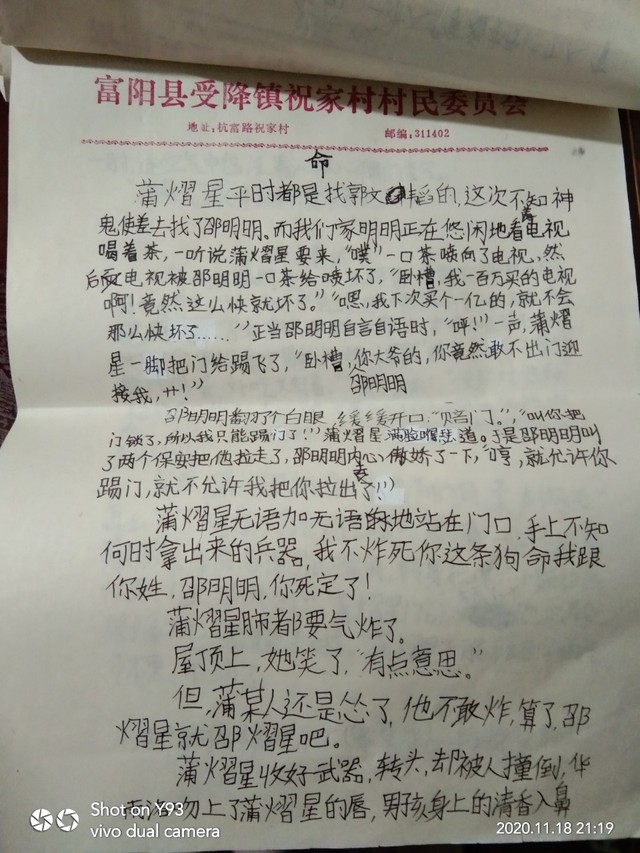 富阳县受降镇祝家村村民委员会
地址:杭富路祝家村 邮编:311402
命
蒲熠星平时都是找郭文韬的,这次不知神
鬼使差去找了邵明明。而我们家明明正在悠闲地看着电视
喝着茶,一听说蒲熠星要来,“噗”一口茶喷向了电视,然
后电视被邵明明一口茶给喷坏了,“卧槽,我一百万买的电视
啊!竟然这么快就坏了。”“嗯,我下次买个一亿的,就不会
那么快坏了……”正当邵明明自言自语时,“呯!”一声,蒲熠
星一脚把门给踢飞了,“卧槽,你大爷的,你竟然敢不出门迎
接我,艹!”
邵明明
邵明明翻了个白眼,缓缓开口:“赔门。”,“叫你把
门锁了,所以我只能踢门了!”蒲熠星满脸嘚道。于是邵明明叫
了两个保安把他拉走了,邵明明内心,傲娇了一下,“哼,就允许你
踢门,就不允许我把你拉出去了!”
蒲熠星无语加无语的地站在门口,手上不知
何时拿出来的兵器,我不炸死你这条狗命我跟
你姓,邵明明,你死定了!
蒲熠星肺都要气炸了。
屋顶上,她笑了,“有点意思。”
但,蒲某人还是怂了,他不敢炸,算了,邵
熠星就邵熠星吧。
蒲熠星收好武器,转头,却被人撞倒,华
吻上了蒲熠星的唇,男孩身上的清香入鼻
Shot on Y93
vivo dual camera
2020.11.18 21:19